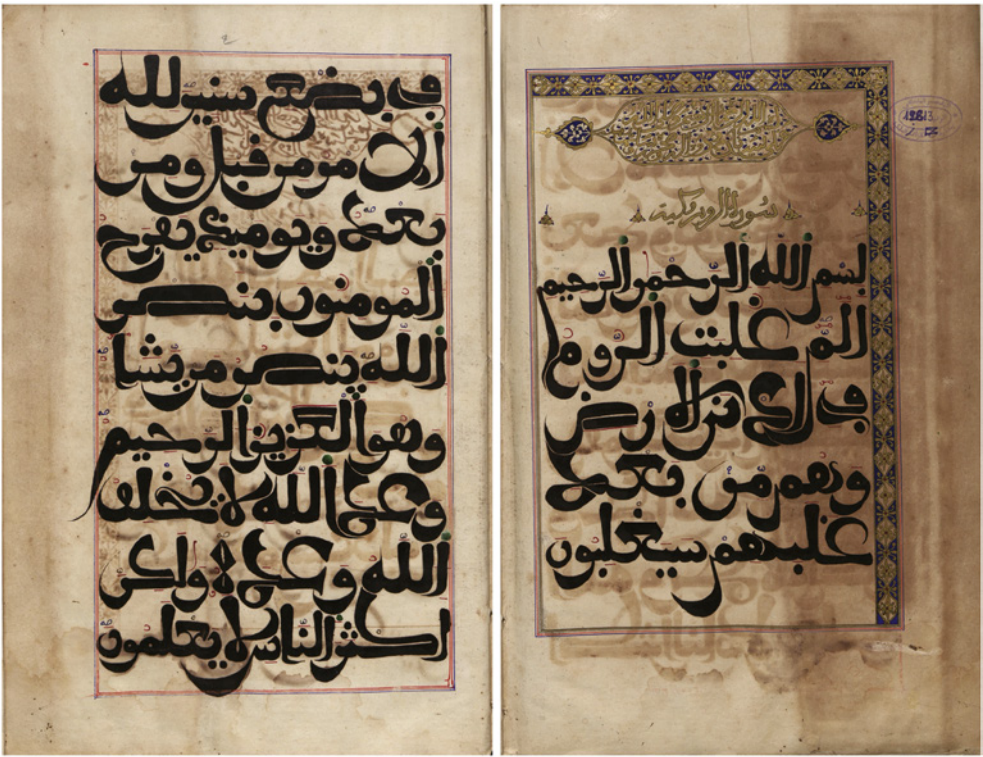 سورة الروم مكية
بسم الله الرحمن الرحيم
الم غلبت الروم
في ادنى الارض
وهم من بعد
غلبهم سيغلبون
في بضع سنين لله
الامر من قبل ومن
بعد ويومئذ يفرح
المومنون بنصر
الله ينصر من يشا
وهو العزيز الرحيم
وعد الله لا يخلف
الله وعده ولكن
اكثر الناس لا يعلمون